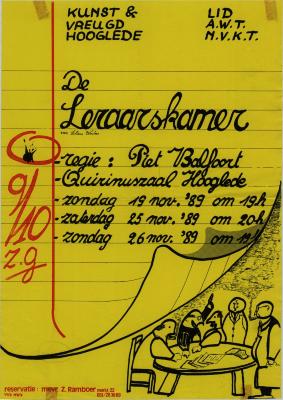 KUNST &
VREUGD
HOOGLEDE
LID
A.W.T.
N.V.K.T.
De
Leraarskamer
- regie : Piet Balfoort
- Quirinuszaal Hooglede
- zondag 19 nov. '89 om 19h
- zaterdag 25 nov. '89 om 20h
- zondag 26 nov. '89 om
9/10
z.g
reservatie : mevr. Z. Ramboer